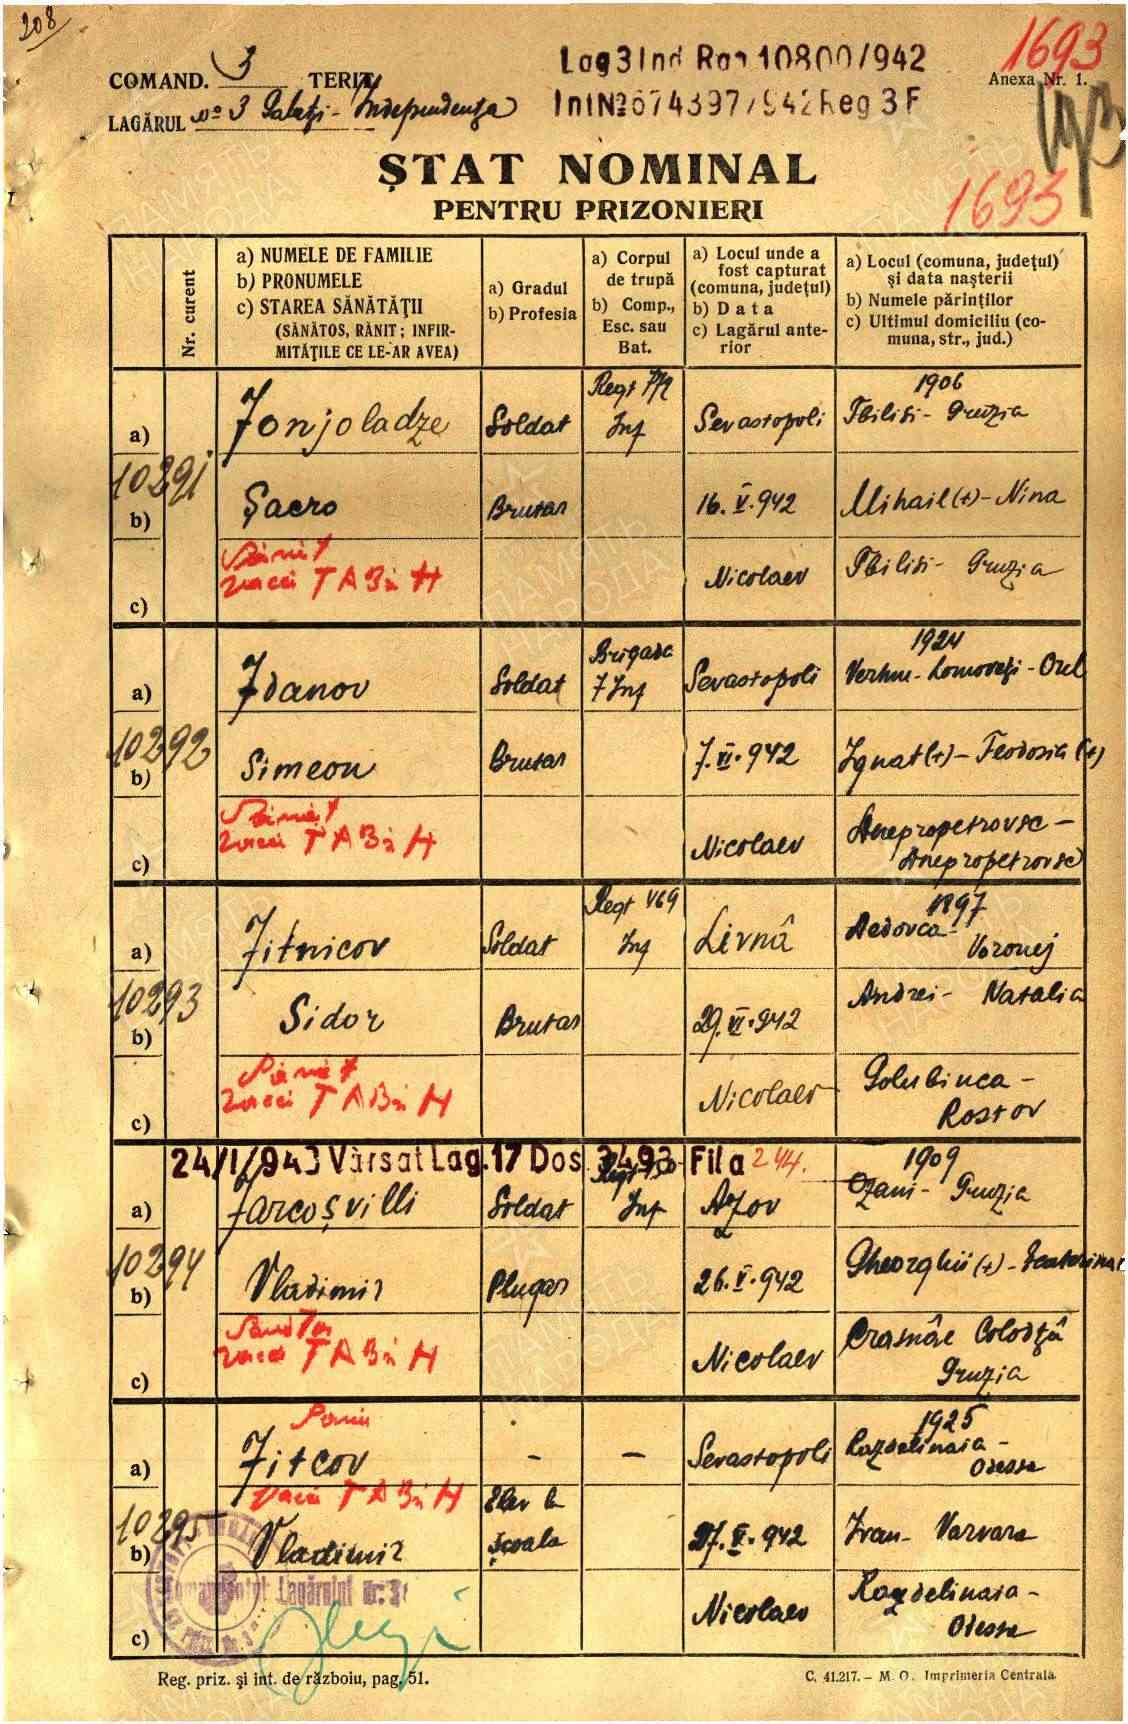 208
COMAND. 3 TERIT.
LAGĂRUL No 3 Galați - Independența
Lag 3 Ind Rap 10800/942
Int No 674397/942 Reg 3 F
1693
Anexa Nr. 1.
1693
ȘTAT NOMINAL
PENTRU PRIZONIERI
Nr. curent
a) NUMELE DE FAMILIE
b) PRONUMELE
c) STAREA SĂNĂTĂŢII
(SĂNĂTOS, RĂNIT ; INFIR-
MITĂŢILE CE LE-AR AVEA)
a) Gradul
b) Profesia
a) Corpul
de trupă
b) Comp.,
Esc. sau
Bat.
a) Locul unde a
fost capturat
(comuna, județul)
b) Data
c) Lagărul ante-
rior
a) Locul (comuna, județul)
și data nașterii
b) Numele părinților
c) Ultimul domiciliu (co-
muna, str., jud.)
a) Jonjoladze Soldat Regt Inf Sevastopoli 1906 Tbilisi - Gruzia
10291
b) Șacro Brutar 16.V.942 Mihail (+) - Nina
c) vacci T A B H Nicolaev Tbilisi - Gruzia
a) Jdanov Soldat Brigada 7 Inf Sevastopoli 1924 - Orel
10292
b) Simeon Brutar 7.VI.942 Ignat (+) - Teodosia (+)
c) vacci T A B H Nicolaev Dnepropetrovsc -
Dnepropetrovsc
a) Jitnicov Soldat Regt Inf Livnâ 1897
Voronej
10293
b) Sidor Brutar 29.VI.942 Andrei - Natalia
c) vacci T A B H Nicolaev Golubinca -
Rostov
24/I/943 Vărsat Lag. 17 Dos 3493 Fila 244.
a) Jarcoșvilli Soldat Regt Inf Azov 1909 Ozani - Gruzia
10294
b) Vladimir Plugar 26.V.942 Gheorghii (+) - Ecaterina
c) vacci T A B H Nicolaev Crasnâe Colodță
Gruzia
a) Jitcov - - Sevastopoli 1925 Razdelinaia -
Odessa
vacci T A B H
10295
b) Vladimir Elev la școala 27.V.942 Ivan - Varvara
Comandantul Lagărului Nr. 3
c) Nicolaev Razdelinaia -
Odessa
Reg. priz. și int. de războiu, pag. 51.
C. 41.217. – M. O. Imprimeria Centrala.
ПАМЯТЬ
НАРОДА